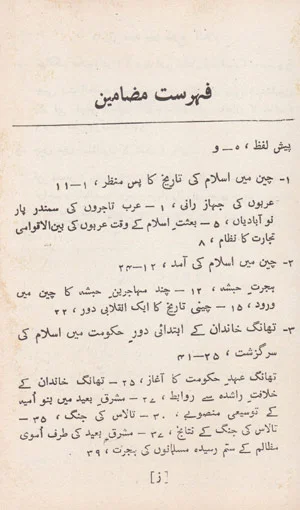 فہرست مضامین
پیش لفظ ، ہ ــ و
۱ـ چین میں اسلام کی تاریخ کا پس منظر ، ۱ــ۱۱
عربوں کی جہاز رانی ، ۱ ــ عرب تاجروں کی سمندر پار
نو آبادیاں ، ۵ ــ بعثت اسلام کے وقت عربوں کی بین الاقوامی
تجارت کا نظام ، ۸
۲ـ چین میں اسلام کی آمد ، ۱۲ــ۲۴
ہجرت حبشہ ، ۱۲ ــ چند مہاجرین حبشہ کا چین میں
ورود ، ۱۵ ــ چینی تاریخ کا ایک انقلابی دور ، ۲۲
۳ـ تھانگ خاندان کے ابتدائی دور حکومت میں اسلام کی
سرگزشت ، ۲۵ــ۴۱
تھانگ عہد حکومت کا آغاز ، ۲۵ ــ تھانگ خاندان کے
خلافت راشدہ سے روابط ، ۲۷ ــ مشرق بعید میں بنو امیہ
کے توسیعی منصوبے ، ۳۰ ــ تالاس کی جنگ ، ۳۵ ــ
تالاس کی جنگ کے نتائج ، ۳۷ ــ مشرق بعید کی طرف اموی
مظالم کے ستم رسیدہ مسلمانوں کی ہجرت ، ۳۹
[ ز ]